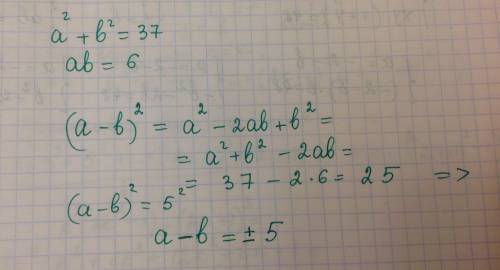 a² + b² = 37
ab = 6
(a - b)² = a² - 2ab + b² =
= a² + b² - 2ab =
= 37 - 2·6 = 25 =>
(a - b)² = 5²
a - b = ± 5